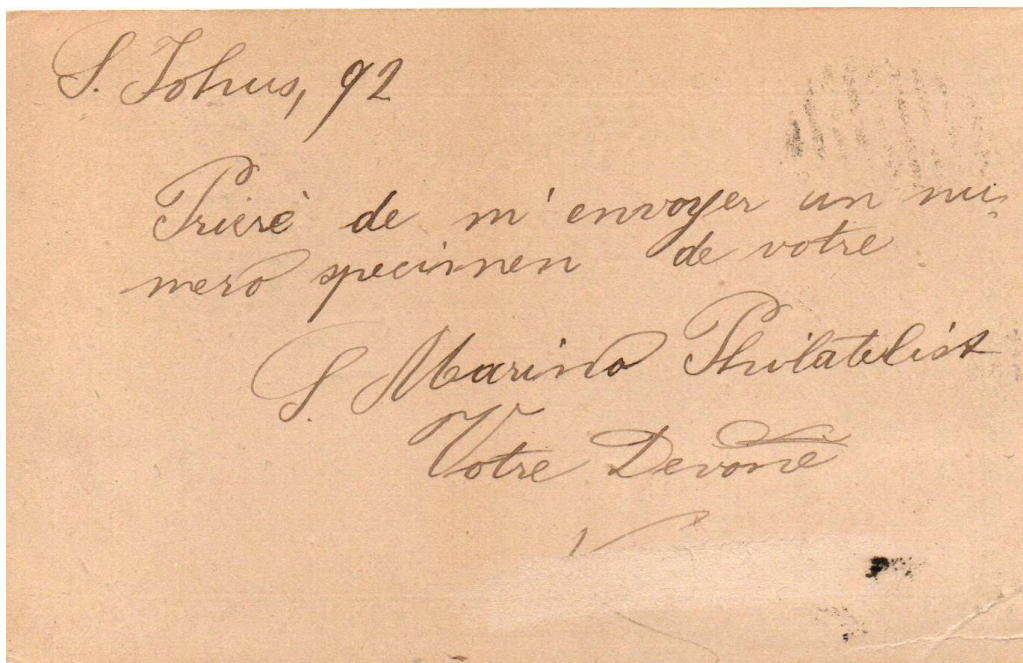 S. Johns, 92
Prierè de m'envoyer un nu-
mero specimen de votre
S. Marino Philatelist
Votre Devoué